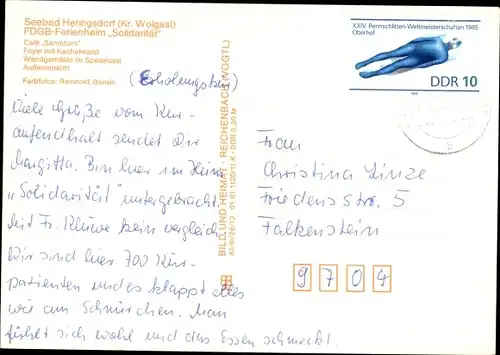 Seebad Heringsdorf (Kr. Wolgast)
FDGB-Ferienheim „Solidarität"
Café „Sanddorn"
Foyer mit Kachelwand
Wandgemälde im Speisesaal
Außenansicht
Farbfotos: Reinhold, Bansin
(Erholungskur)
Viele Grüße vom Kur-
aufendhalt sendet Dir
Margitta. Bin hier im Heim
„Solidarität" untergebracht.
Mit Fr. Kluwe kein vergleich
Wir sind hier 700 Kur-
patienten und es klappt alles
wie am Schnürchen. Man
fühlt sich wohl und das Essen schmeckt.
BILD UND HEIMAT REICHENBACH (VOGTL)
XXIV. Rennschlitten-Weltmeisterschaften 1985
Oberhof
DDR 10
Frau
Christina Linze
Friedens str. 5
Falkenstein
9704